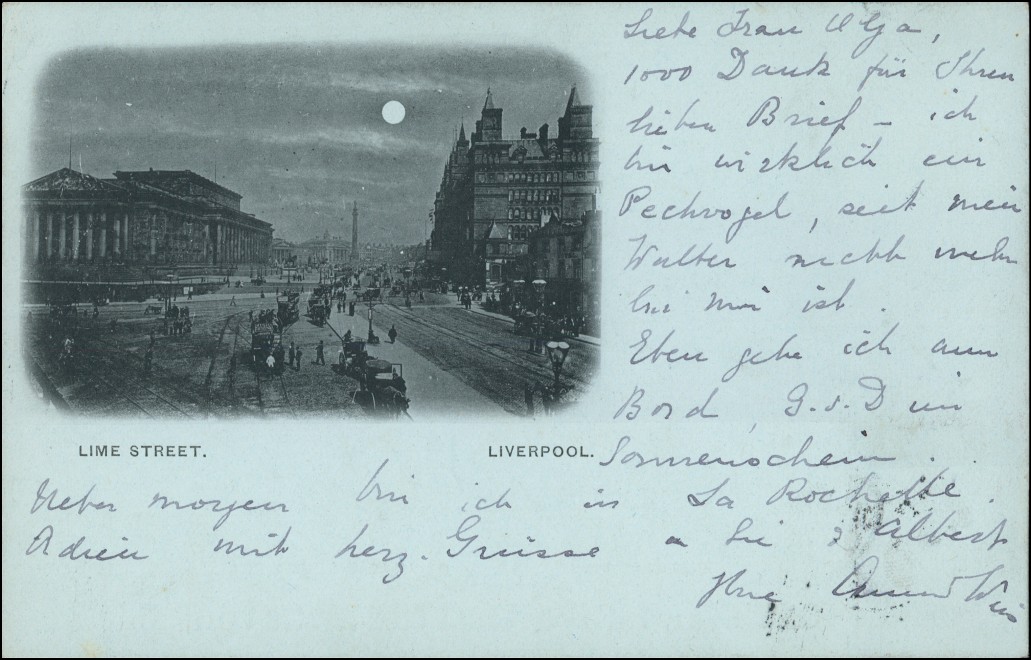 Liebe Frau Olga,
1000 Dank für Ihren
lieben Brief – ich
bin wirklich ein
Pechvogel, seit mein
Walter nicht mehr
bei mir ist.
Eben gehe ich an
Bord, G.s.D im
Sonnenschein.
LIME STREET. LIVERPOOL.
Ueber morgen bin ich in La Rochelle.
Adieu mit herz. Grüsse a Sie & Albert
Ihre